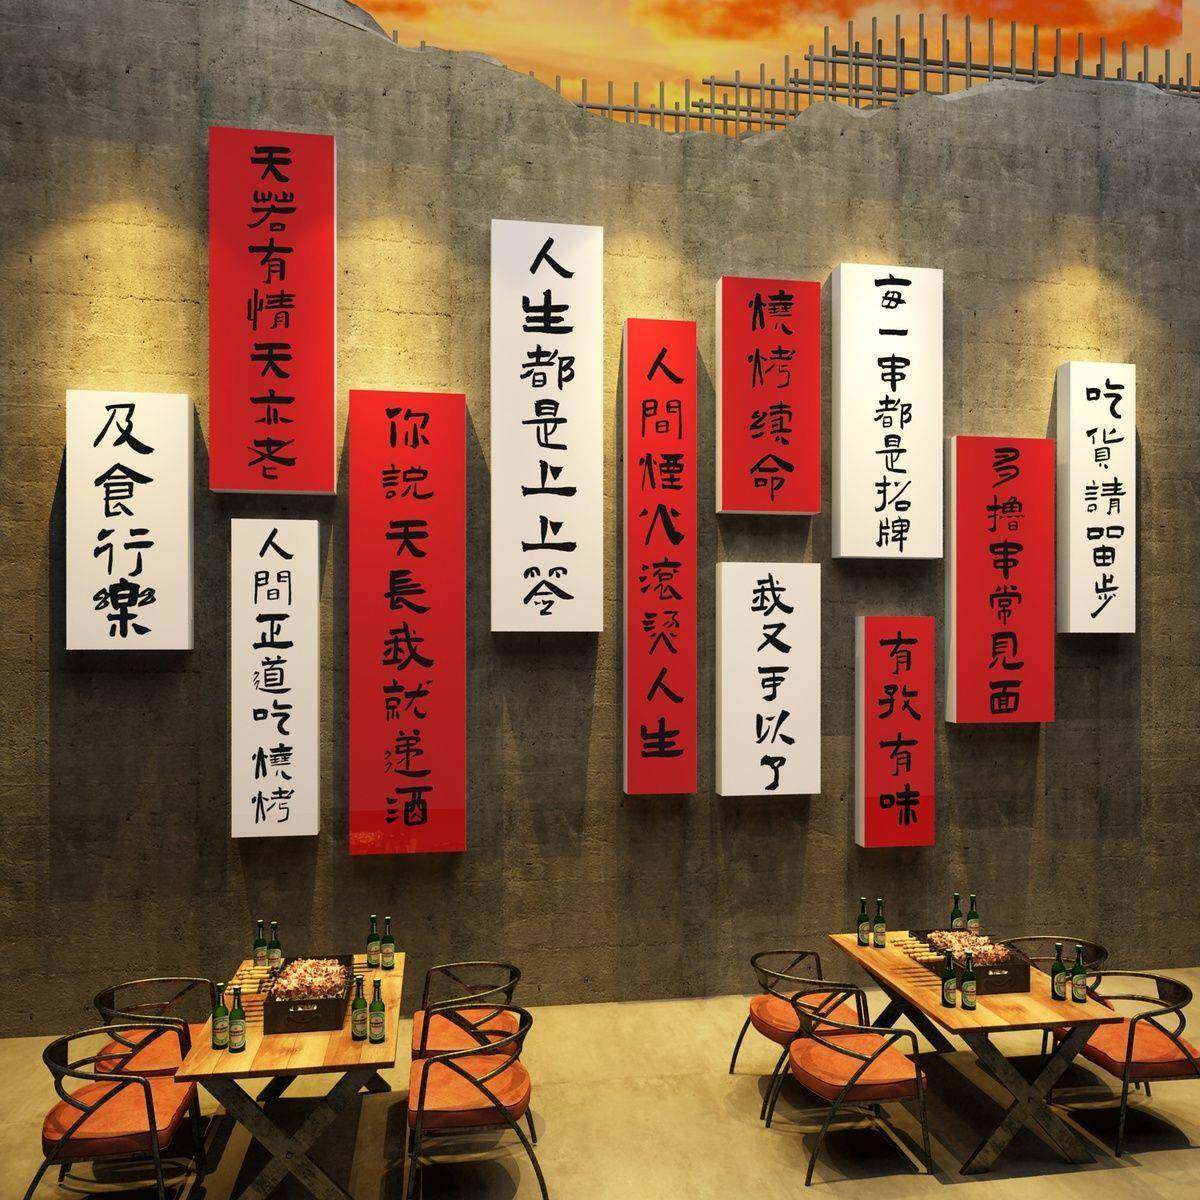 及食行樂
天若有情天亦老
人間正道吃燒烤
你説天長我就递酒
人生都是上上签
人間煙火滚烫人生
燒烤续命
我又可以了
每一串都是招牌
有孜有味
多撸串常見面
吃货請留步